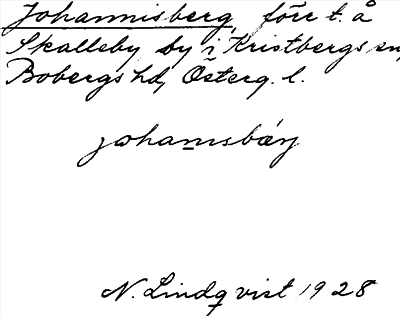 Johannisberg, förr t. å
Skalleby by i Kristbergs sn,
Bobergs hd, Österg. l.
johanisbærj
N. Lindqvist 1928